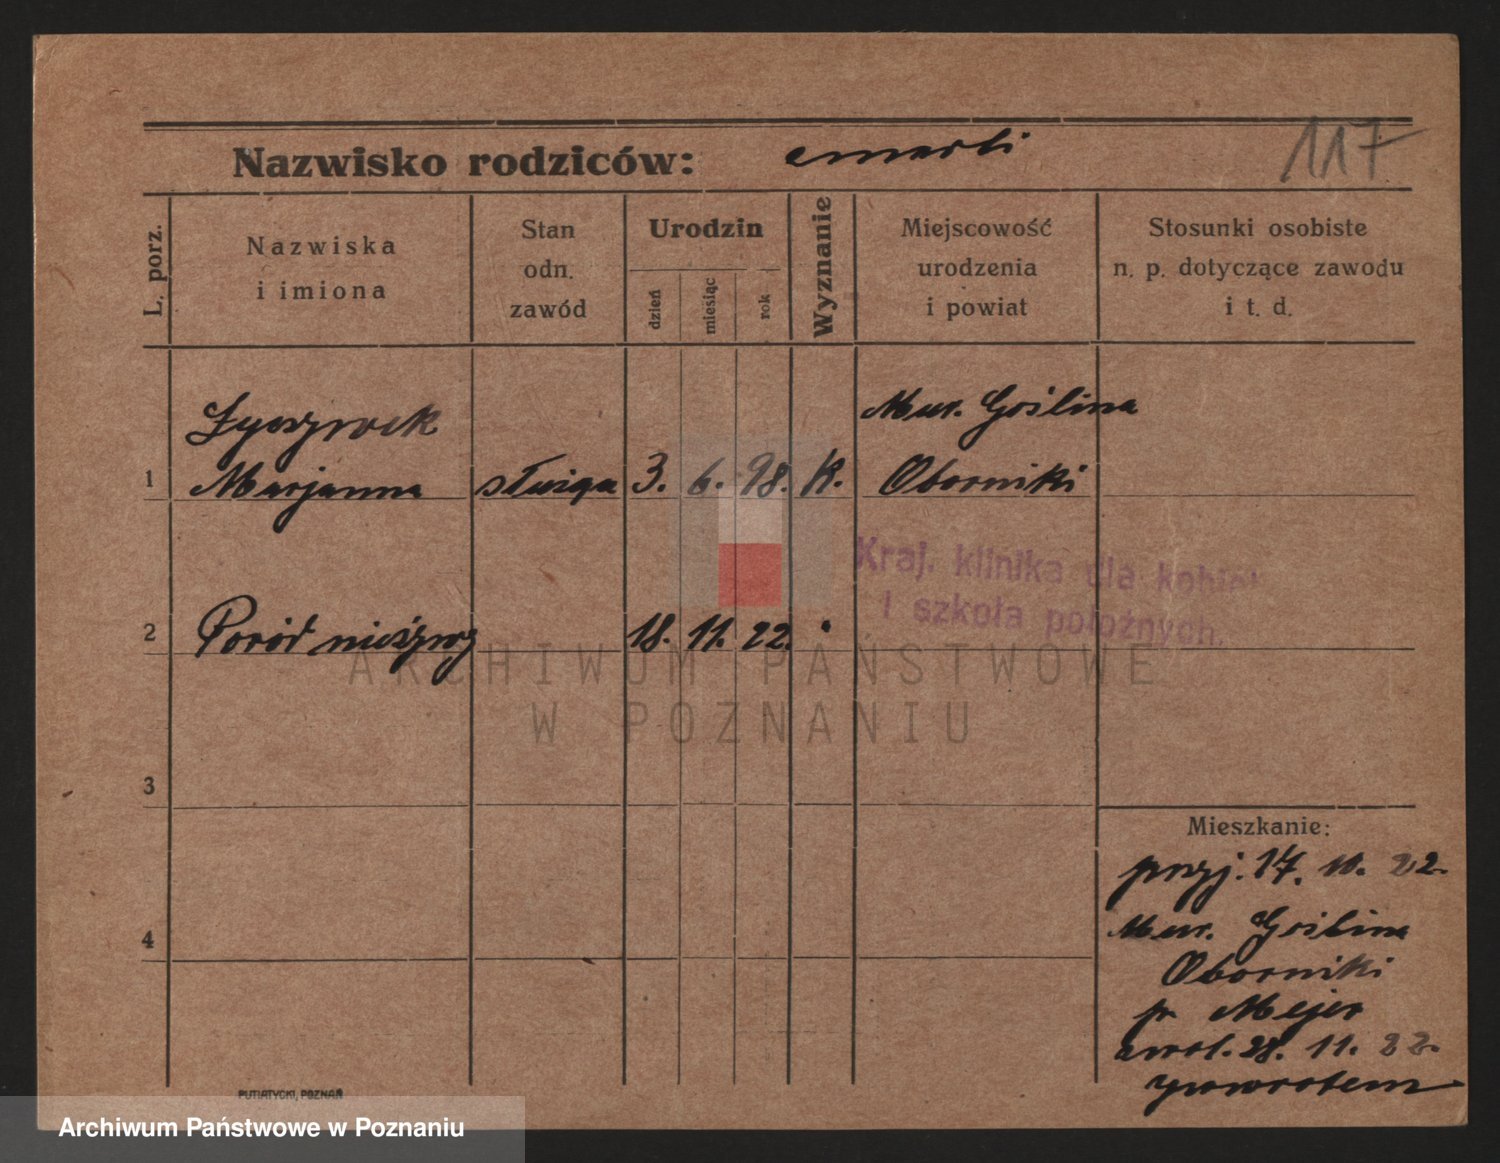 117
Nazwisko rodziców: zmarli
L. porz.
Nazwiska
i imiona
Stan
odn.
zawód
Urodzin
dzień
miesiąc
rok
Wyznanie
Miejscowość
urodzenia
i powiat
Stosunki osobiste
n. p. dotyczące zawodu
i t. d.
Mur. Goślina
1 Marjanna służąca 3. 6. 98. K. Oborniki
Kraj. klinika dla kobiet
i szkoła położnych.
2 Poród nieżywy 18. 11. 22.
ARCHIWUM PAŃSTWOWE
W POZNANIU
3
Mieszkanie:
przyj. 17. 11. 22.
4
Mur. Goślina
Oborniki
p. Mejer
zwol. 28. 11. 22.
powrotem
PUTIATYCKI, POZNAŃ
Archiwum Państwowe w Poznaniu